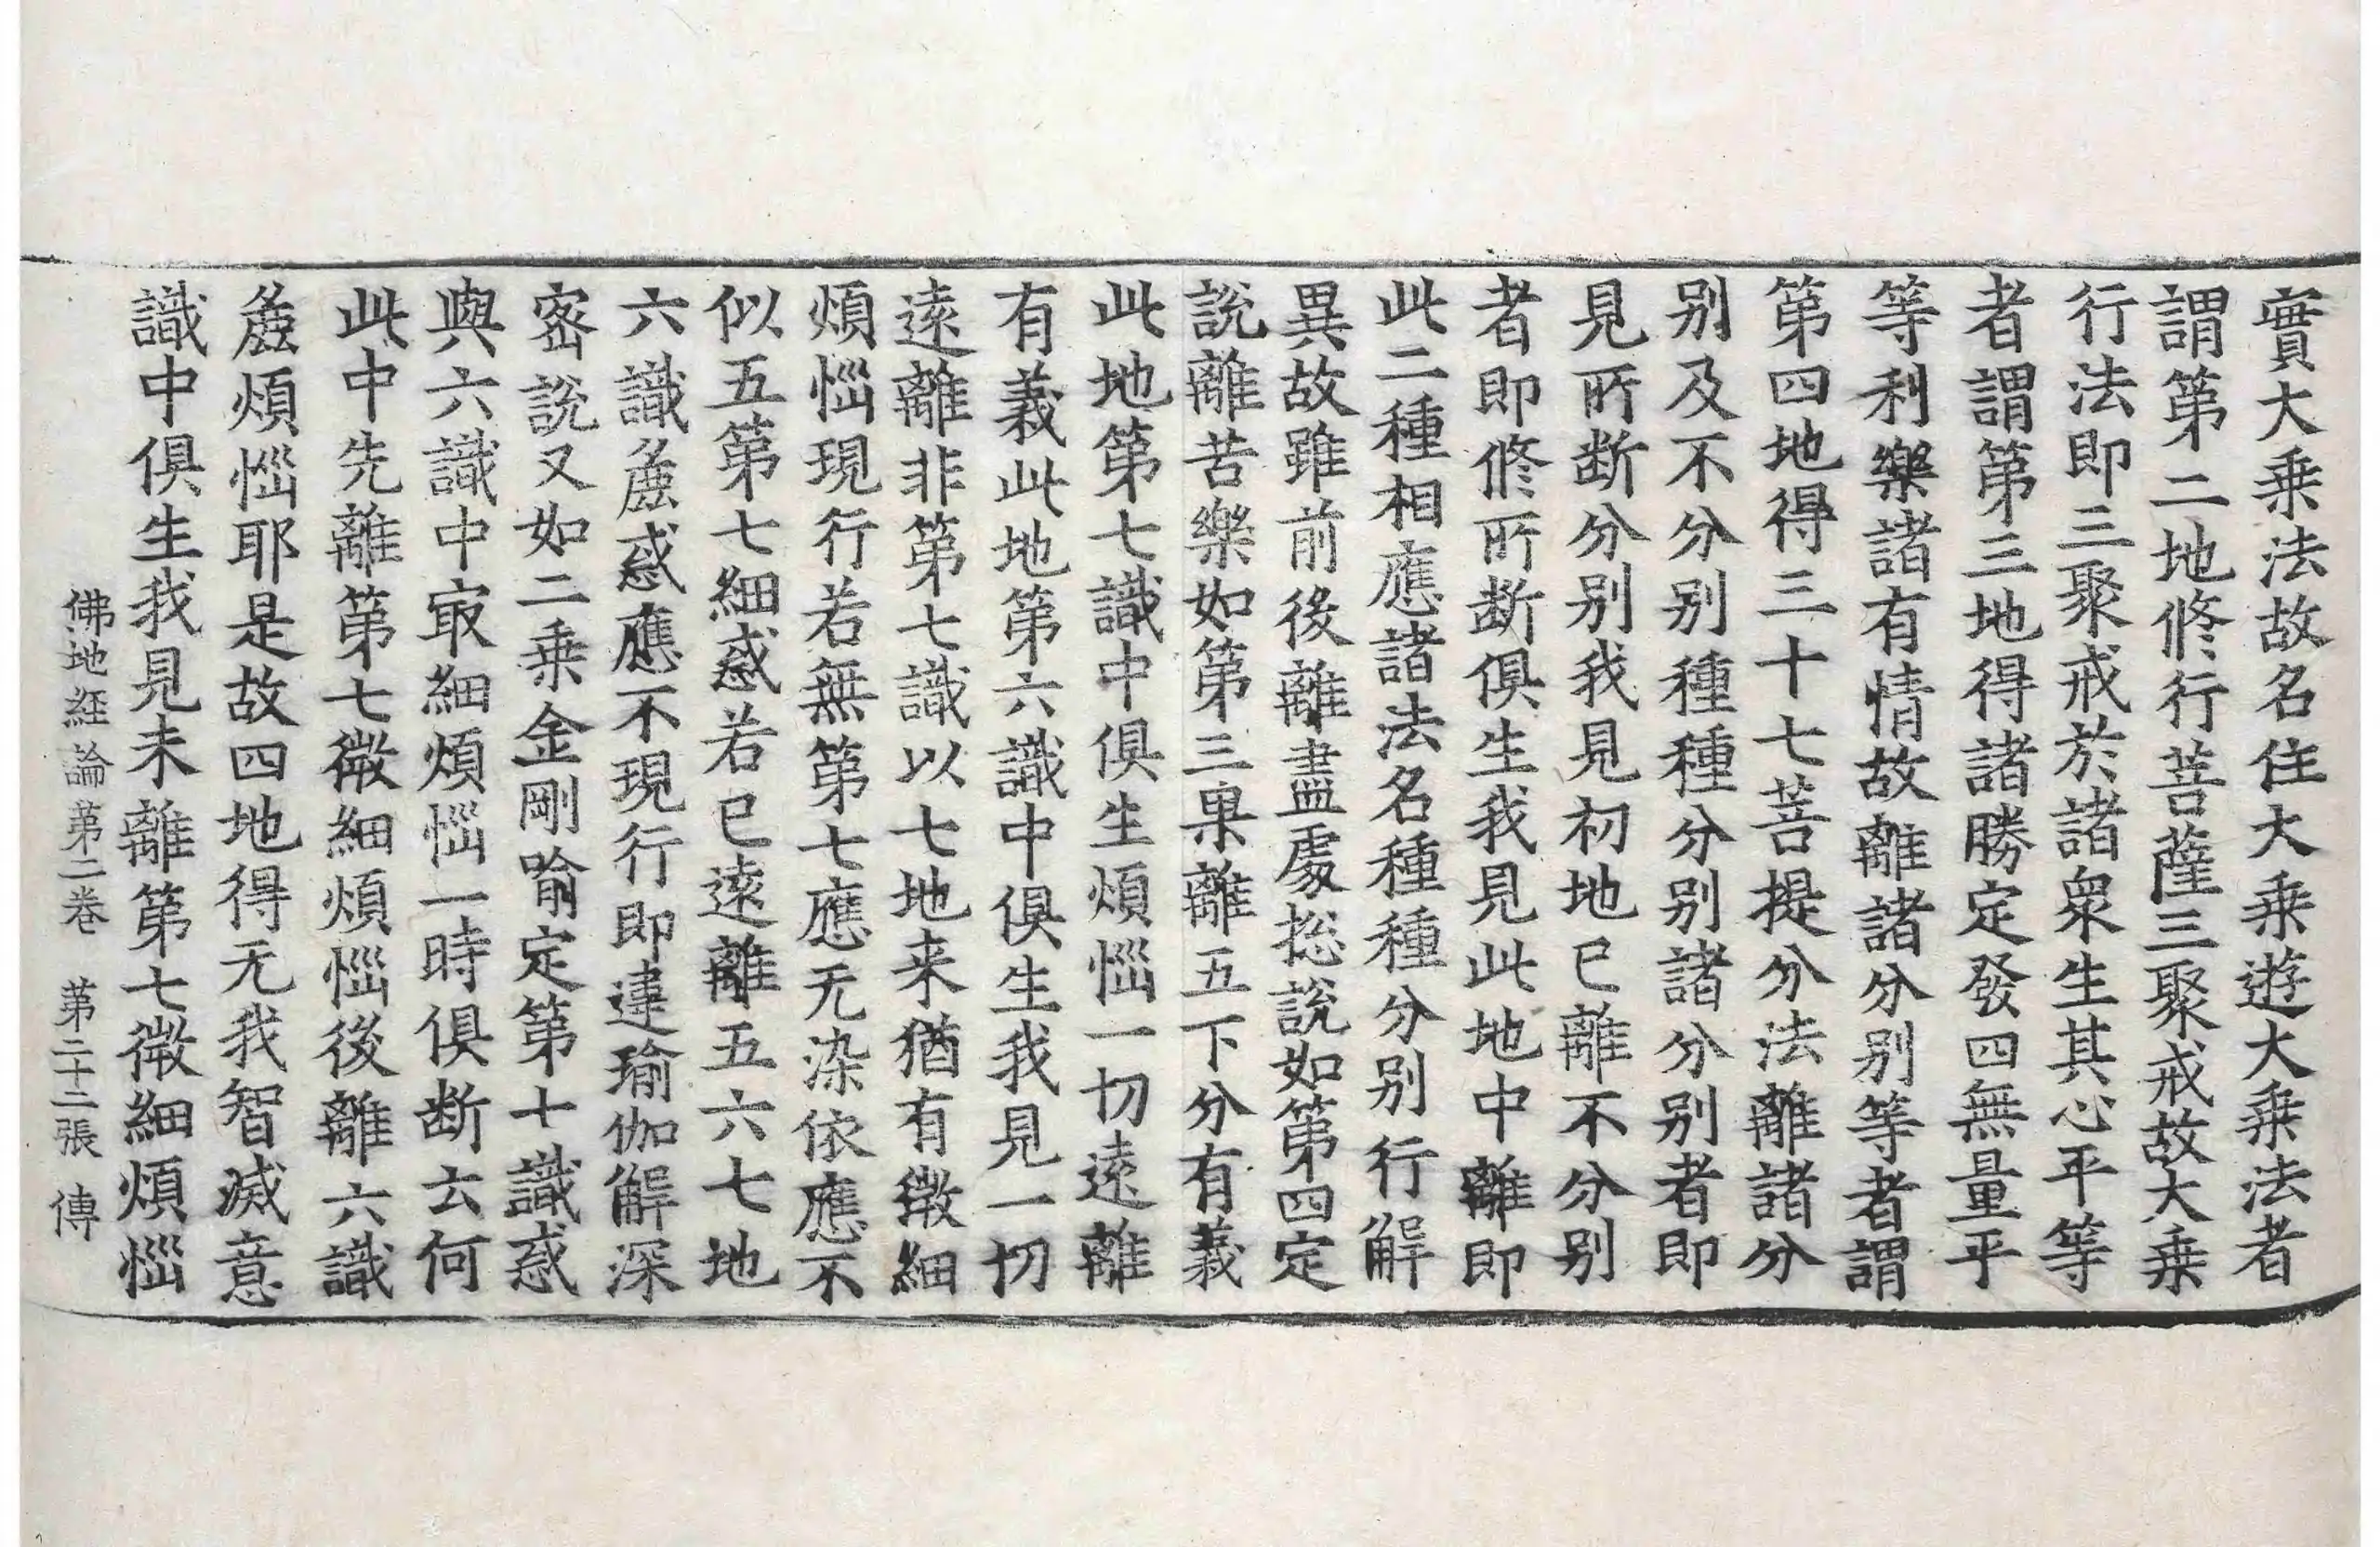 實大乗法故名住大乗遊大乗法者
謂第二地修行菩薩三聚戒故大乗
行法即三聚戒於諸衆生其心平等
者謂第三地得諸勝定發四無量平
等利樂諸有情故離諸分别等者謂
第四地得三十七菩提分法離諸分
别及不分别種種分别諸分别者即
見所断分别我見初地已離不分别
者即修所断俱生我見此地中離即
此二種相應諸法名種種分别行解
異故雖前後離盡處捴說如第四定
說離苦樂如第三果離五下分有義
此地第七識中俱生煩惱一切逺離
有義此地第六識中俱生我見一切
逺離非第七識以七地来猶有微細
煩惱現行若無第七應无染依應不
似五第七細惑若已逺離五六七地
六識麁惑應不現行即違瑜伽解深
密說又如二乗金剛喻定第十識惑
與六識中㝡細煩惱一時俱断云何
此中先離第七微細煩惱後離六識
麁煩惱耶是故四地得无我智滅意
識中俱生我見未離第七微細煩惱
佛地經論第二卷　第二十二張　傳